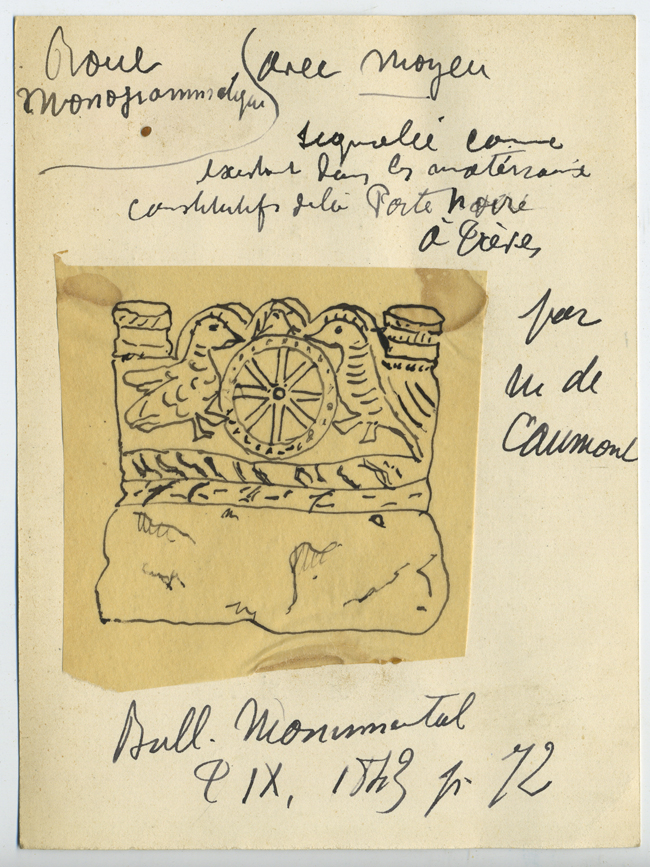 Roue (avec moyeu
Monogrammatique
signalée comme
existant dans les matériaux
constitutifs de la Porte Noire
à Trèves
par
M de
Caumont
Bull. Monumental
T IX, 1843 p. 72